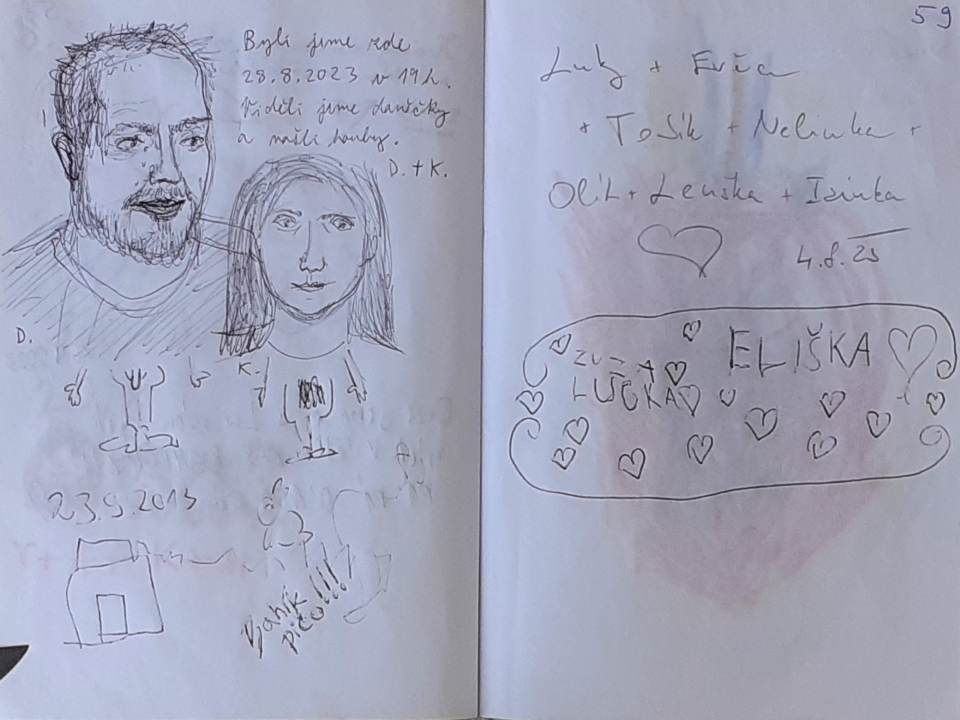 Byli jsme zde
28.8.2023 v 19h.
Viděli jsme daněčky
a našli houby.
D. + K.
D.
K.
23.9.2013
Vjaník
pičo!!!!
59
Luky + Evča
+ Tosik + Nelinka +
Olik + Lenska + Isinka
4.8.25
ELIŠKA
LUCKA